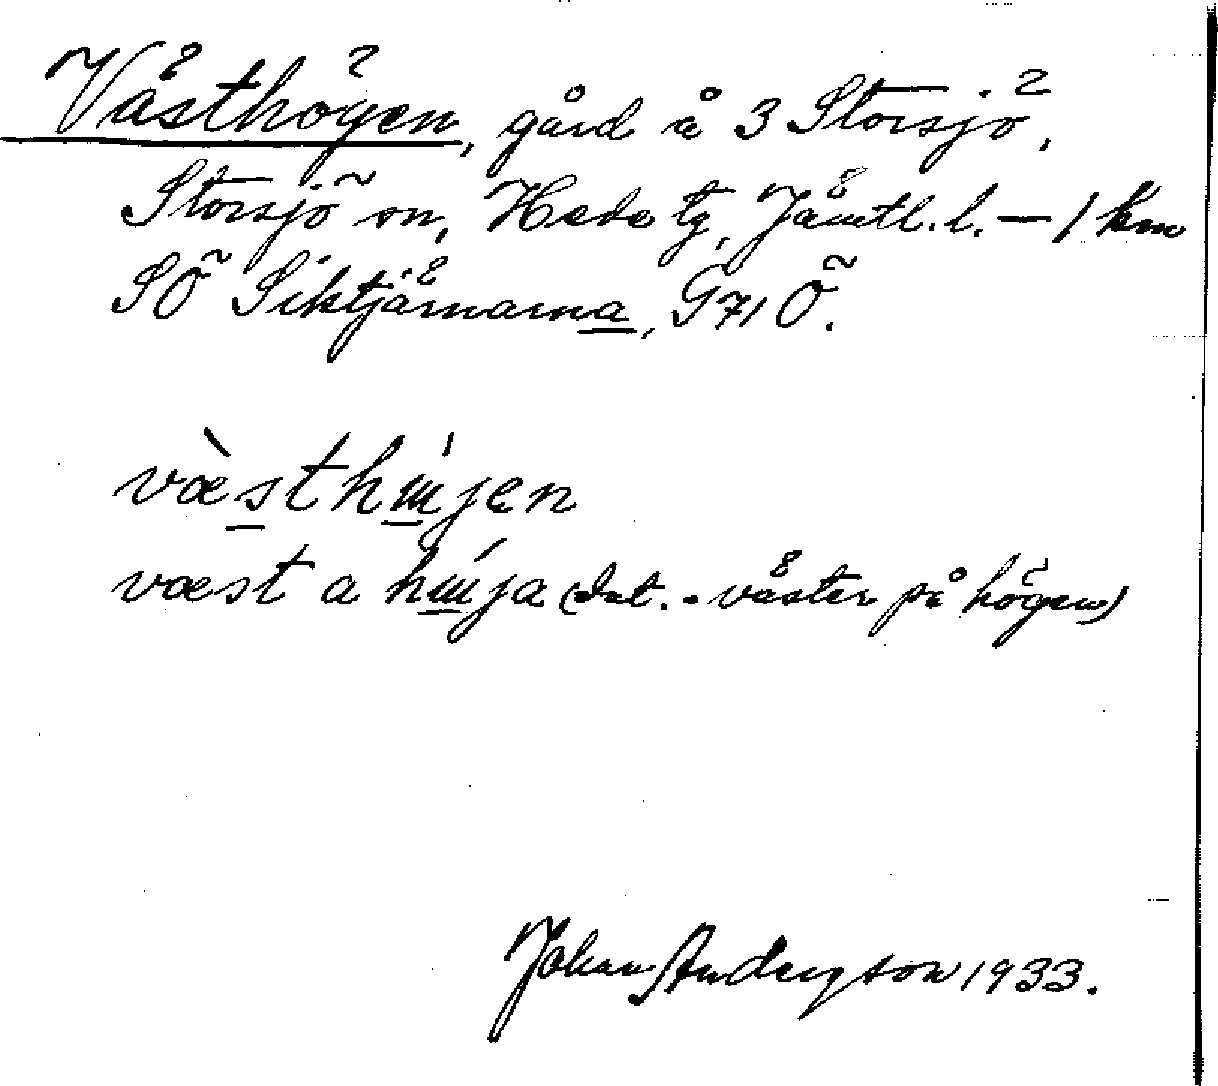 Västhögen, gård å 3 Storsjö,
Storsjö sn, Hede tg, Jämtl. l. — 1 km
SÖ Siktjärnarna, G71 Ö.
væ̀sthɯ́jen
væst a hɯ́ja (dat. - väster på högen)
Johan Andersson 1933.